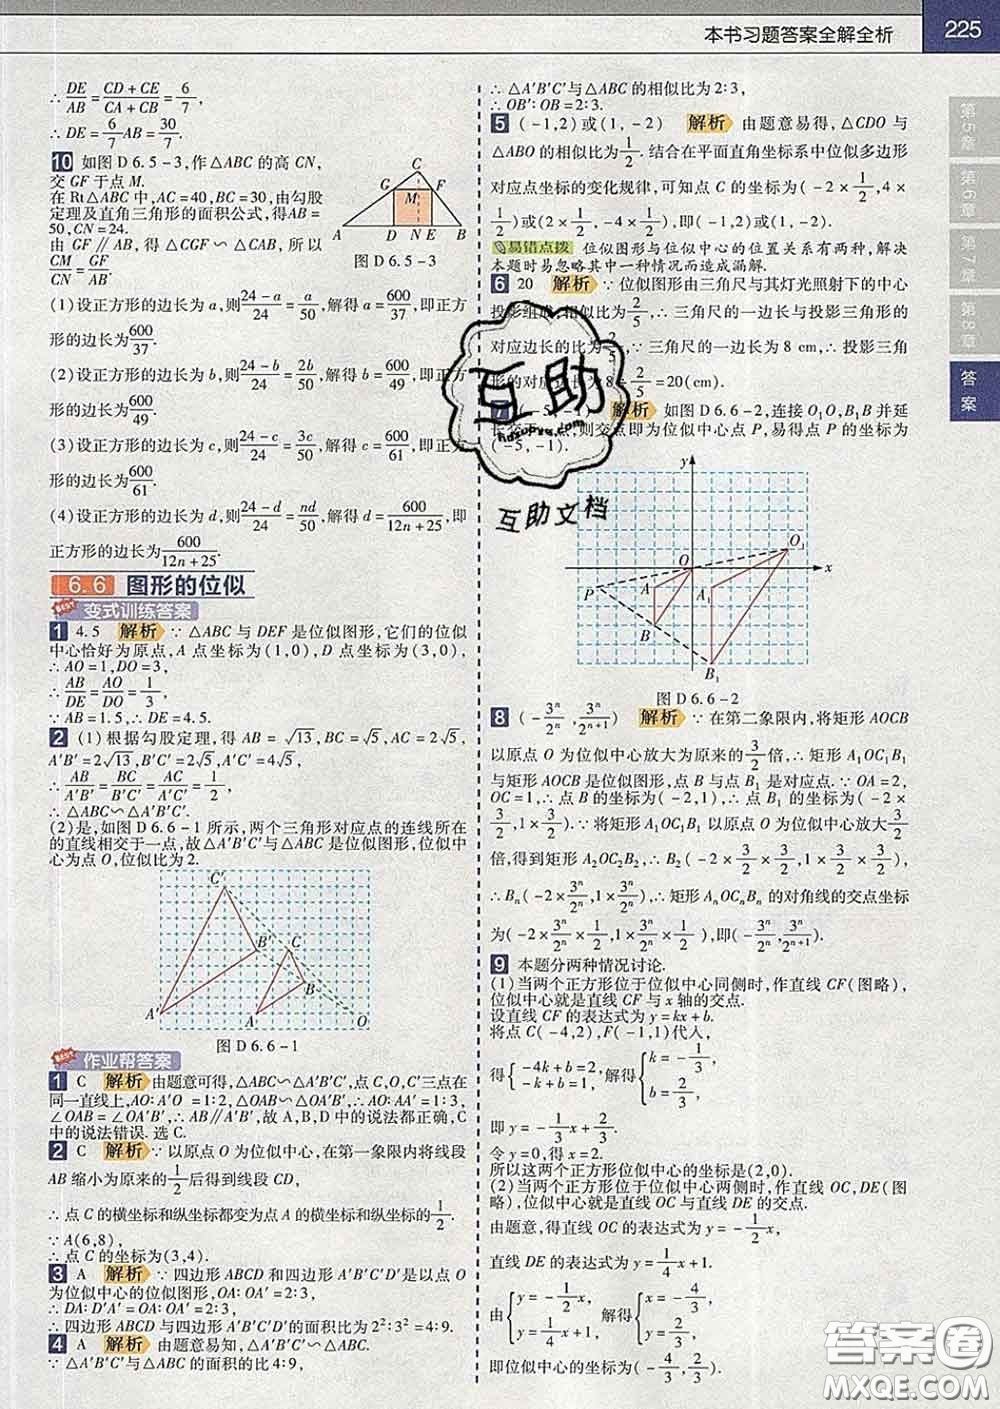 本书习题答案全解全析 225
第5章
第6章
第7章
第8章
答案
∴ DE/AB = (CD+CE)/(CA+CB) = 6/7,
∴ DE = 6/7 AB = 30/7.
10 如图 D 6.5-3,作△ABC 的高 CN,
交 GF 于点 M.
在 Rt△ABC 中,AC=40,BC=30,由勾股
定理及直角三角形的面积公式,得AB=
50,CN=24.
由 GF∥AB,得△CGF∽△CAB,所以
CM/CN = GF/AB.
C
G M F
A D N E B
图 D 6.5-3
(1)设正方形的边长为 a,则(24-a)/24 = a/50,解得 a = 600/37,即正方
形的边长为600/37.
(2)设正方形的边长为 b,则(24-b)/24 = 2b/50,解得 b = 600/49,即正方
形的边长为600/49.
(3)设正方形的边长为 c,则(24-c)/24 = 3c/50,解得 c = 600/61,即正方
形的边长为600/61.
(4)设正方形的边长为 d,则(24-d)/24 = nd/50,解得 d = 600/(12n+25),即
正方形的边长为600/(12n+25).
6.6 图形的位似
BEST 变式训练答案
1 4.5 解析 ∵ △ABC 与 DEF 是位似图形,它们的位似
中心恰好为原点,A 点坐标为(1,0),D 点坐标为(3,0),
∴ AO=1,DO=3,
∴ AB/DE = AO/DO = 1/3,
∵ AB=1.5,∴ DE=4.5.
2 (1)根据勾股定理,得 AB=√13,BC=√5,AC=2√5,
A′B′=2√13,B′C′=2√5,A′C′=4√5,
∴ AB/A′B′ = BC/B′C′ = AC/A′C′ = 1/2,
∴ △ABC∽△A′B′C′.
(2)是,如图 D 6.6-1 所示,两个三角形对应点的连线所在
的直线相交于一点,故△A′B′C′与△ABC是位似图形,位似中
心为点 O,位似比为2.
C′
B′ C
B
A′ A O
图 D 6.6-1
BEST 作业帮答案
1 C 解析 由题意可得,△ABC∽△A′B′C′,点 C,O,C′三点在
同一直线上,AO∶A′O =1∶2,△OAB∽△OA′B′,AO∶AA′=1∶3,
∠OAB=∠OA′B′,∴ AB∥A′B′,故 A,B,D 中的说法都正确,C
中的说法错误. 选 C.
2 C 解析 ∵ 以原点 O 为位似中心,在第一象限内将线段
AB 缩小为原来的1/2后得到线段 CD,
∴ 点 C 的横坐标和纵坐标都变为点 A 的横坐标和纵坐标的1/2.
∵ A(6,8),
∴ 点 C 的坐标为(3,4).
3 A 解析 ∵ 四边形 ABCD 和四边形 A′B′C′D′是以点 O
为位似中心的位似图形,OA∶OA′=2∶3,
∴ DA∶D′A′=OA∶OA′=2∶3,
∴ 四边形 ABCD 与四边形 A′B′C′D′的面积比为 2²∶3²=4∶9.
4 A 解析 由题意易知,△A′B′C′∽△ABC.
∵ △A′B′C′与△ABC 的面积的比 4∶9,
∴ △A′B′C′与△ABC 的相似比为2∶3,
∴ OB′∶OB=2∶3.
5 (-1,2)或(1,-2) 解析 由题意易得,△CDO 与
△ABO 的相似比为1/2. 结合在平面直角坐标系中位似多边形
对应点坐标的变化规律,可知点 C 的坐标为(-2×1/2,4×
1/2)或(2×1/2,-4×1/2),即(-1,2)或(1,-2).
易错点拨 位似图形与位似中心的位置关系有两种,解决
本题时易忽略其中一种情况而造成漏解.
6 20 解析 ∵ 位似图形由三角尺与其灯光照射下的中心
投影组成,相似比为2/5,∴ 三角尺的一边长与投影三角形的
对应边长的比为2/5. ∵ 三角尺的一边长为 8 cm,∴ 投影三角
形的对应边长为8÷2/5=20(cm).
7 (-5,-1) 解析 如图 D 6.6-2,连接 O₁O,B₁B 并延
长交于一点,则交点即为位似中心点 P,易得点 P 的坐标为
(-5,-1).
y
O₁
O x
P A A₁
B
B₁
图 D 6.6-2
8 (-3ⁿ/2ⁿ,3ⁿ/2ⁿ⁺¹) 解析 ∵ 在第二象限内,将矩形 AOCB
以原点 O 为位似中心放大为原来的3/2倍,∴ 矩形 A₁OC₁B₁
与矩形 AOCB 是位似图形,点 B 与点 B₁ 是对应点.∵ OA=2,
OC=1,∴ 点 B 的坐标为(-2,1),∴ 点 B₁ 的坐标为(-2×
3/2,1×3/2). ∵ 将矩形 A₁OC₁B₁ 以原点 O 为位似中心放大3/2
倍,得到矩形 A₂OC₂B₂,∴ B₂(-2×3/2×3/2,1×3/2×3/2),
∴ Bₙ(-2×3ⁿ/2ⁿ,1×3ⁿ/2ⁿ),∴ 矩形 AₙOCₙBₙ 的对角线的交点坐标
为(-2×3ⁿ/2ⁿ×1/2,1×3ⁿ/2ⁿ×1/2),即(-3ⁿ/2ⁿ,3ⁿ/2ⁿ⁺¹).
9 本题分两种情况讨论.
(1)当两个正方形位于位似中心同侧时,作直线 CF(图略),
位似中心就是直线 CF 与 x 轴的交点.
设直线 CF 的表达式为 y=kx+b.
将点 C(-4,2),F(-1,1)代入,
得{-4k+b=2, -k+b=1, 解得{k=-1/3, b=2/3,
即 y=-1/3x+2/3.
令 y=0,得 x=2.
所以这两个正方形位似中心的坐标是(2,0).
(2)当两个正方形位于位似中心两侧时,作直线 OC,DE(图
略),位似中心就是直线 OC 与直线 DE 的交点.
由题意,得直线 OC 的表达式为 y=-1/2x,
直线 DE 的表达式为 y=1/4x+1.
由{y=-1/2x, y=1/4x+1, 解得{x=-4/3, y=2/3,
即位似中心的坐标为(-4/3,2/3).
互助
huzupyw.com
互助文档
答案圈
MXQE.COM